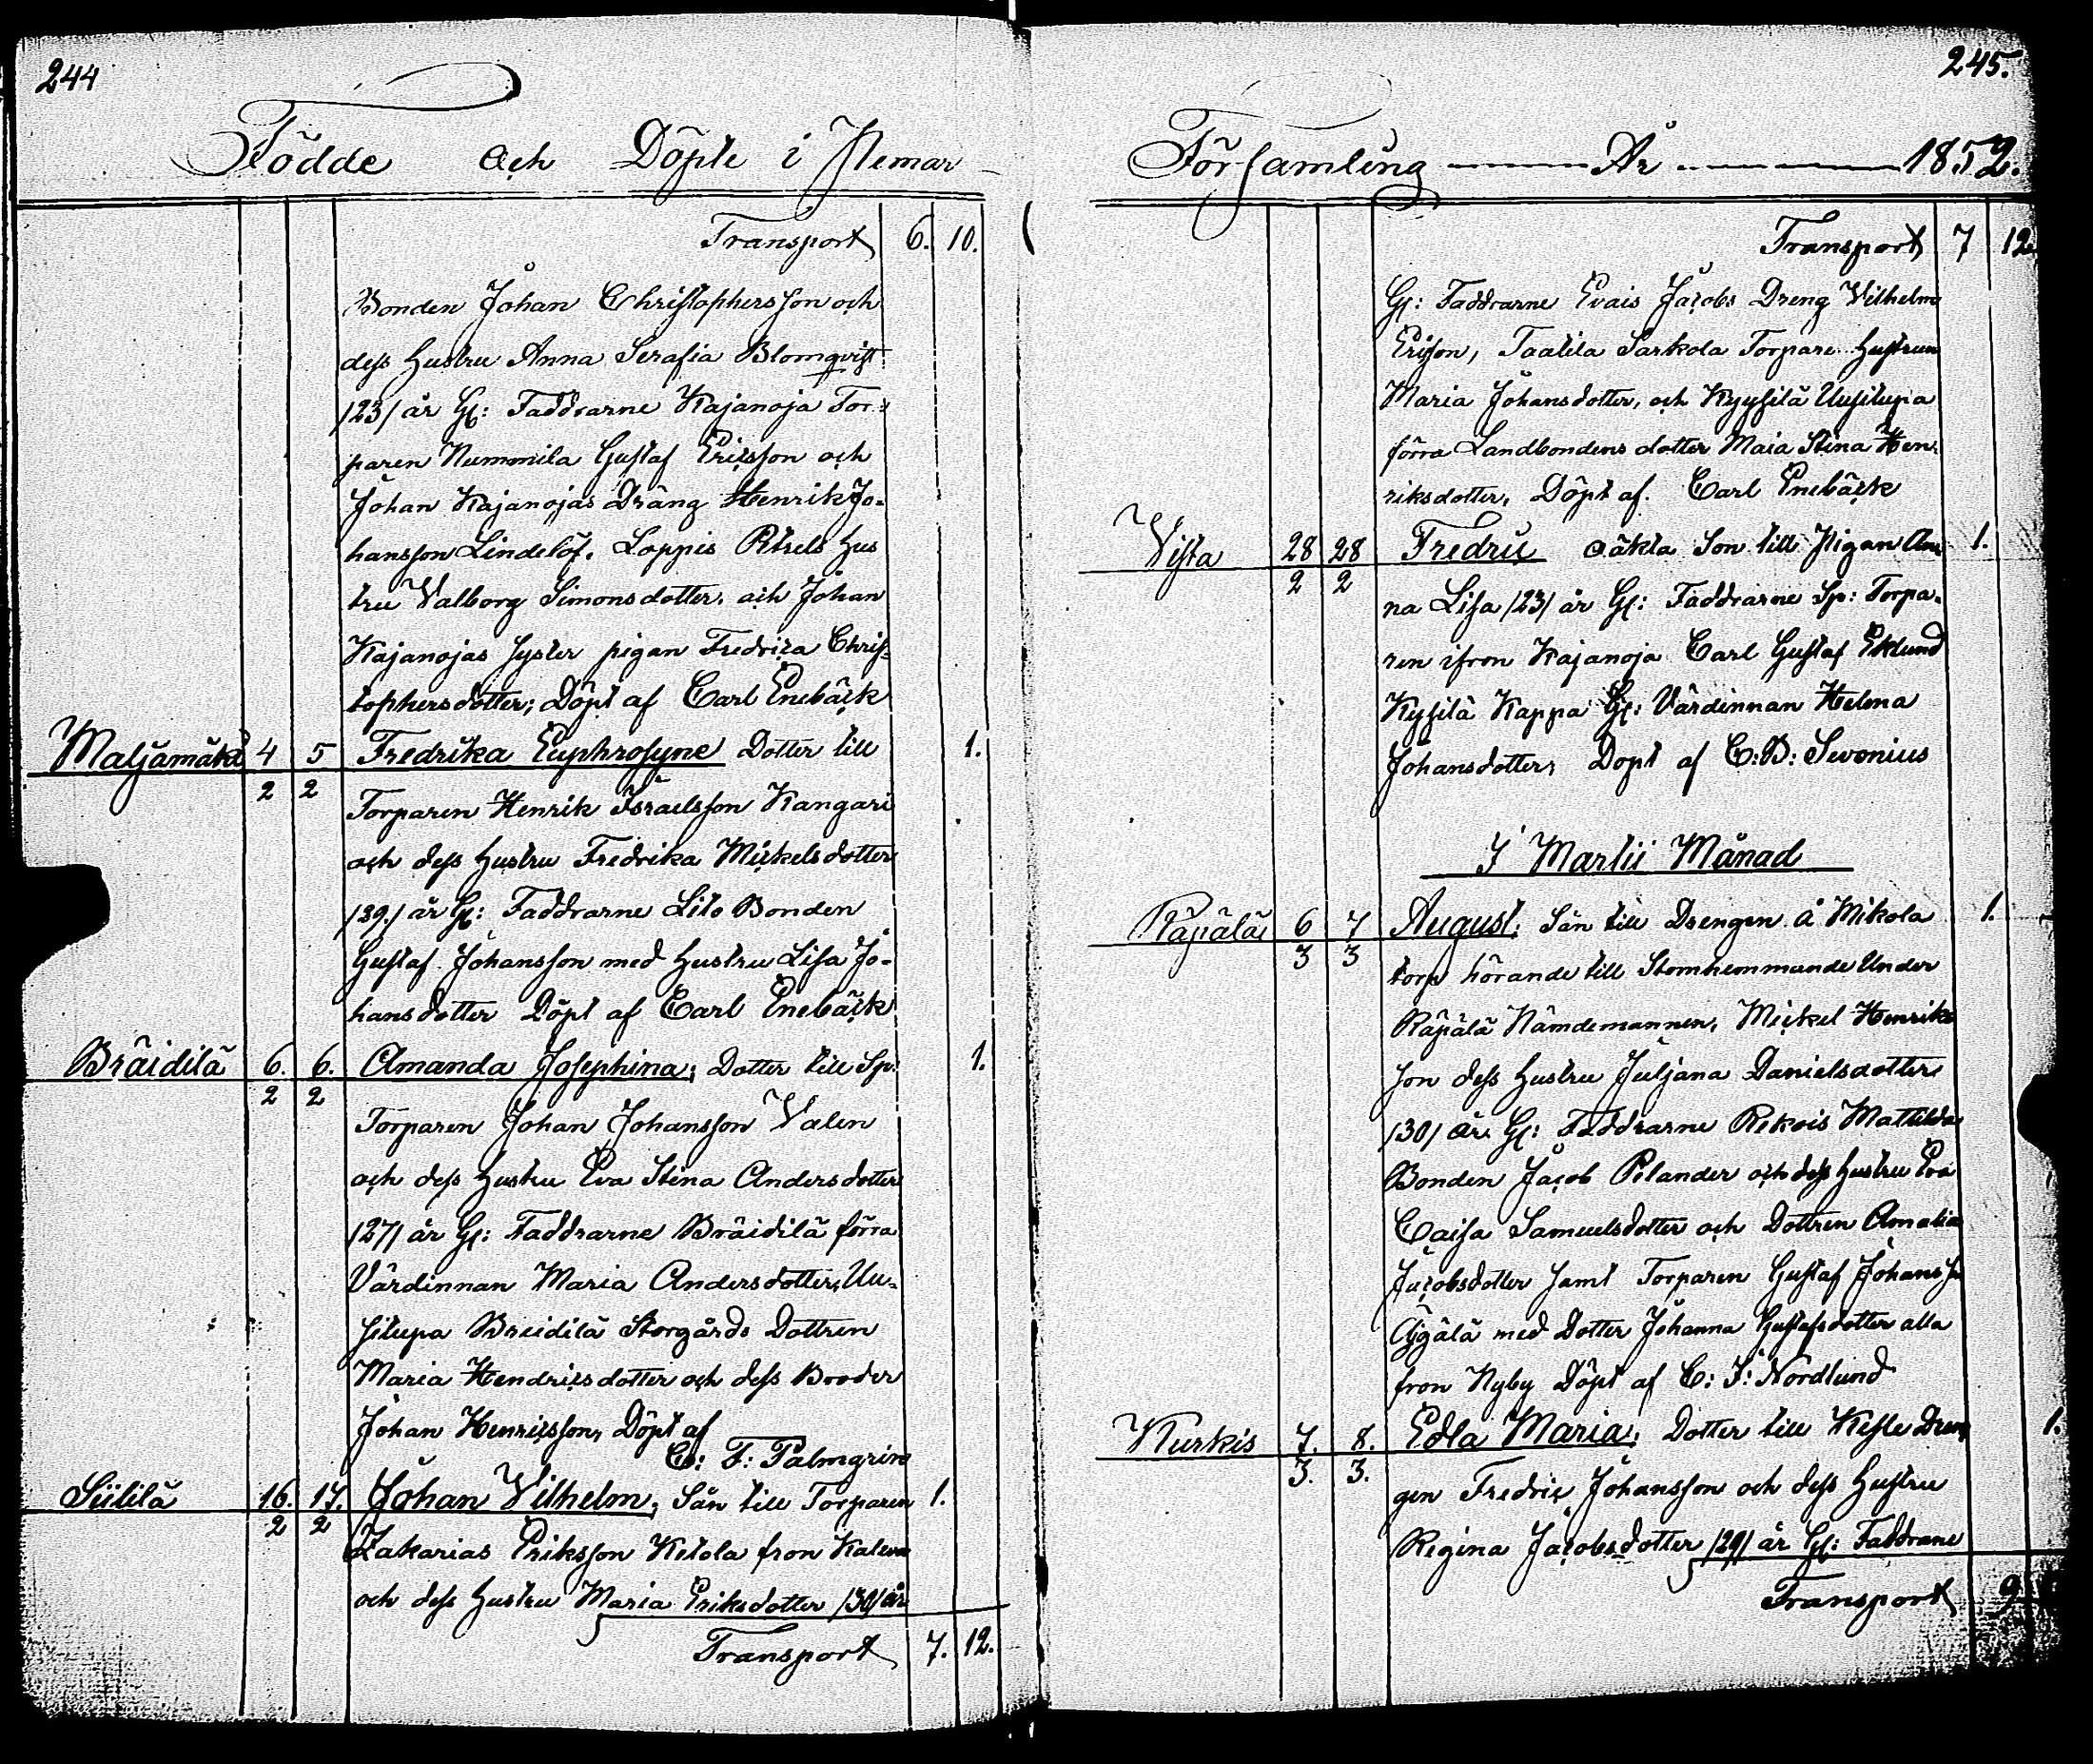 244
Födde och Döpte i Pemar
Transport 6. 10.
Bonden Johan Christophersson och
dess Hustru Anna Serafia Blomqvist
/23/ år Gl: Faddrarne Kajanoja Tor-
paren Nummila Gustaf Ericsson och
Johan Kajanojas Dräng Henrik Jo-
hansson Lindelöf. Loppis Hus
tru Valborg Simonsdotter. och Johan
Kajanojas Syster pigan Fredrica Chris-
tophersdotter; Döpt af Carl Enebäck
Maljamäki 4/2 5/2 Fredrika Euphrosyne Dotter till 1.
Torparen Henrik Israelsson Kangari
och dess Hustru Fredrika Mickelsdotter
/39./ år Gl: Faddrarne Lito Bonden
Gustaf Johansson med Hustru Lisa Jo-
hansdotter Döpt af Carl Enebäck
Bräidilä 6./2 6./2 Amanda Josephina; Dotter till Sp: 1.
Torparen Johan Johansson Valen
och dess Hustru Eva Stina Andersdotter
/27/ år Gl: Faddrarne Bräidilä förra
Värdinnan Maria Andersdotter, Uu-
situpa Breidilä Storgårds Dottren
Maria Hendricsdotter och dess Broder
Johan Henricsson, Döpt af
C: F: Palmgren
Siililä 16./2 17./2 Johan Vilhelm, Sån till Torparen 1.
Zakarias Eriksson Ketola fron Kaleva
och dess Hustru Maria Eriksdotter /30/ år
Transport 7. 12.
245.
Församling År 1852.
Transport 7 12.
Gl: Faddrarne Evais Jacobs Dreng Vilhelm
Ericson, Taatila Sarkola Torpare Hustrun
Maria Johansdotter, och Kyysilä Uusitupa
förra Landbondens dotter Maia Stina Hen-
riksdotter, Döpt af Carl Enebäck
Vista 28/2 28/2 Fredric oäkta Son till Pigan An- 1.
na Lisa /23/ år Gl: Faddrarne Sp: Torpa-
ren ifron Kajanoja Carl Gustaf Eklund
Kysilä Kappa Gl: Värdinnan Helena
Johansdotter, Döpt af C:D: Sevonius
I Martii Månad
Räpälä 6/3 7/3 August; Sån till Drengen å Mikola 1.
torp hörande till Stomhemmande Under
Räpälä Nämdemannen, Mickel Henriks
son dess Hustru Juljana Danielsdotter
/30/ år Gl: Faddrarne Rekois Mattilda
Bonden Jacob Pelander och dess Hustru Eva
Caisa Samuelsdotter och Dottren Amalia
Jacobsdotter samt Torparen Gustaf Johansson
Äjälä med Dotter Johanna Gustafsdotter alla
fron Nyby Döpt af C: J: Nordlund
Kurkis 7./3. 8./3. Edla Maria; Dotter till Dren, 1.
gen Fredric Johansson och dess Hustru
Regina Jacobsdotter /29/ år Gl: Faddrane
Transport 9